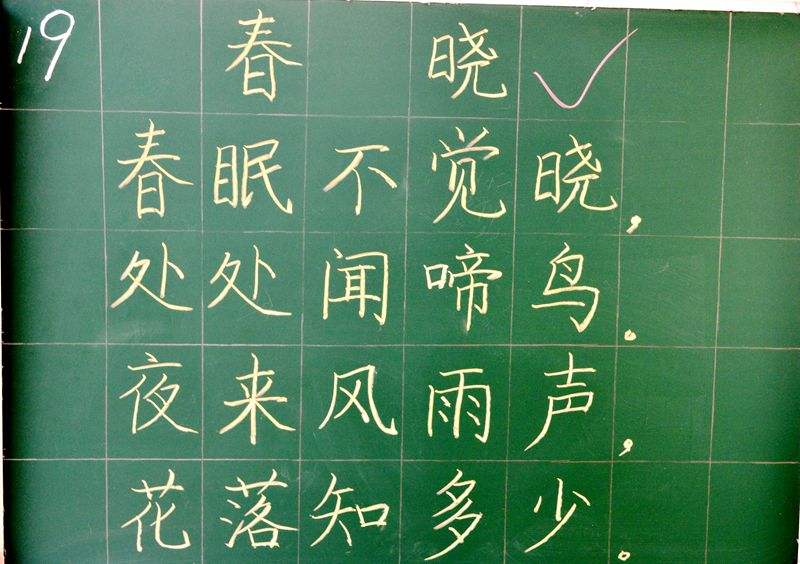 19
春晓
春眠不觉晓，
处处闻啼鸟。
夜来风雨声，
花落知多少。